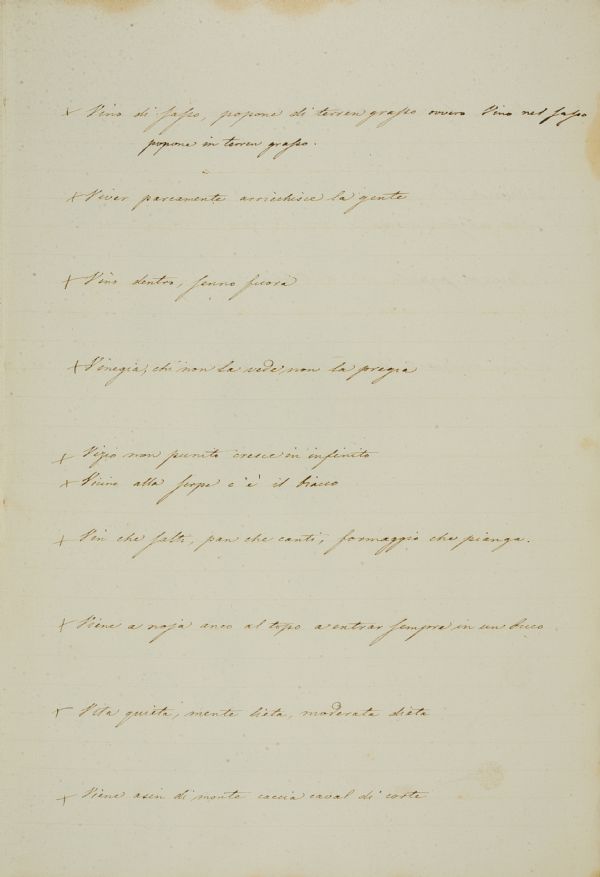 x Vino di sasso, popone di terren grasso ovvero Vino nel sasso
popone in terren grasso.
x Viver parcamente arricchisce la gente
x Vino dentro, senno fuora
x Vinegia, chi non la vede, non la pregia
x Vizio non punito cresce in infinito
x Vicino alla serpe c'è il biacco
x Vin che salti, pan che canti, formaggio che pianga.
x Viene a noja anco al topo a entrar sempre in un buco
x Vita quieta, mente lieta, moderata dieta
x Viene asin di monte caccia caval di corte